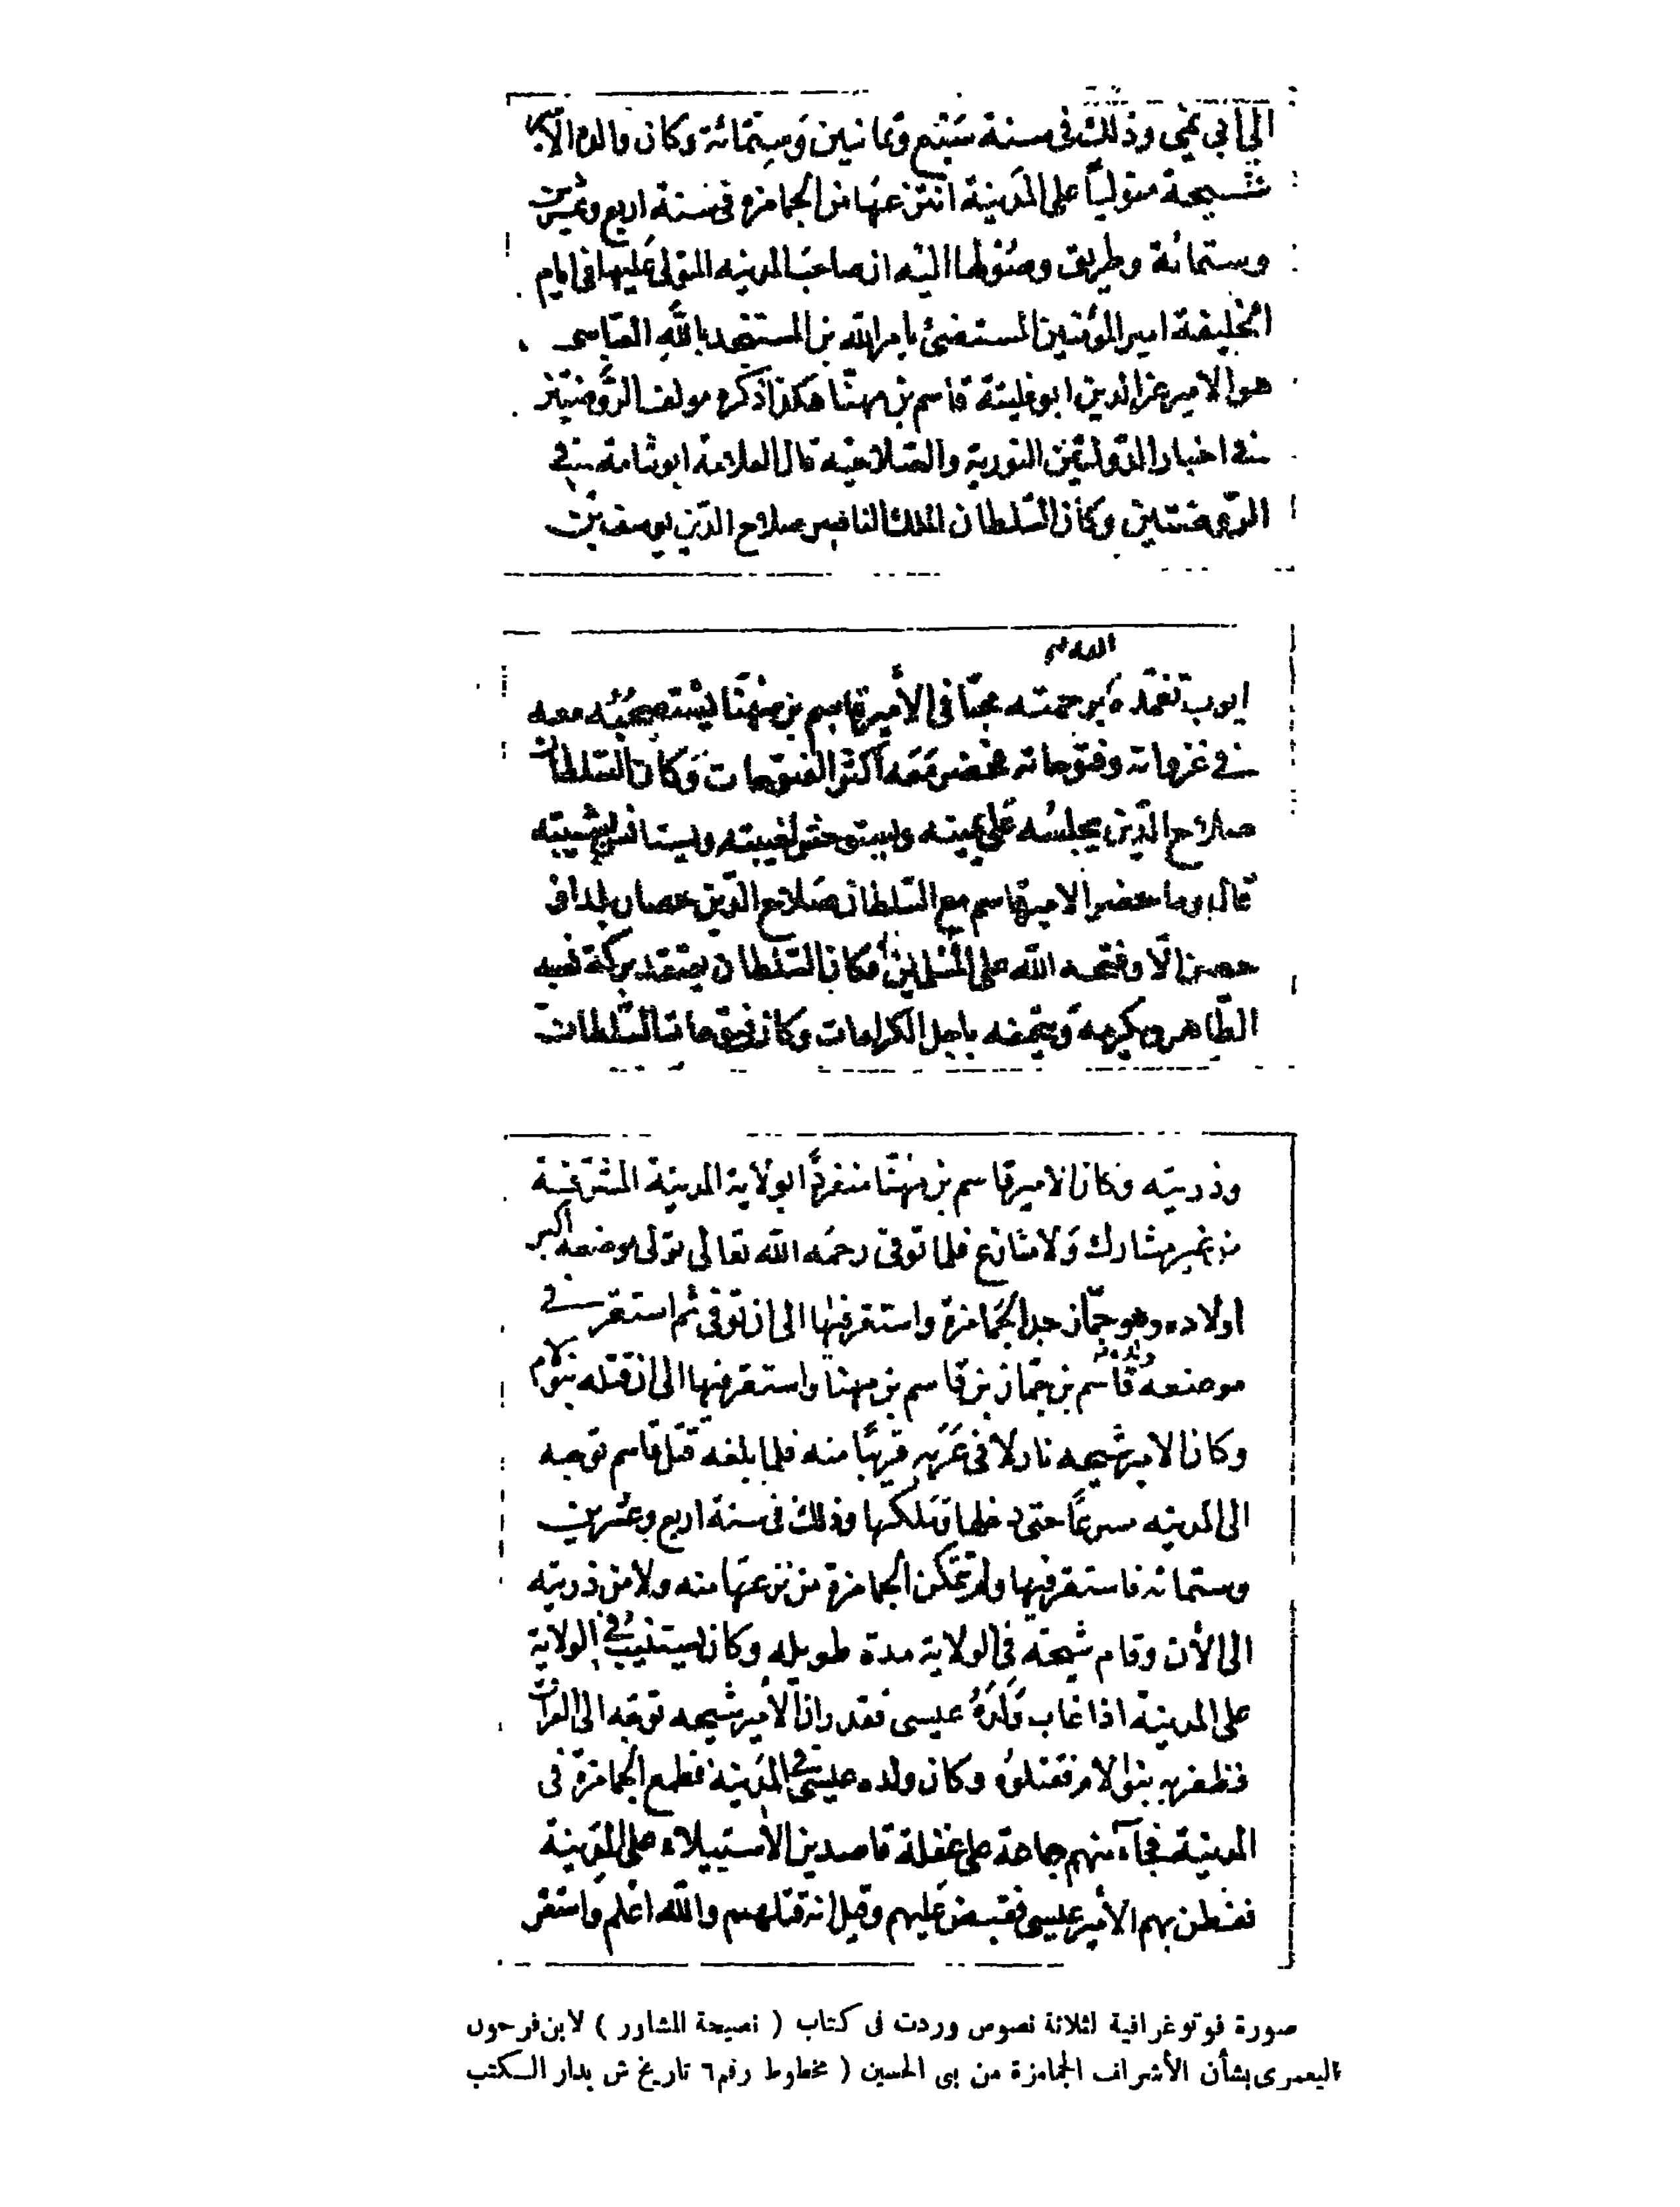 الى ابي نمي وذلك في سنة سبع وثمانين وستمائة وكان والده الأمير
شيحة متوليًا على المدينة انتزعها من الجمامزة في سنة اربع وعشرين
وستمائة وطريق وصولها اليه ان صاحب المدينه المتولى عليها في ايام
الخليفة امير المؤمنين المستضئ بامر الله بن المستنجد بالله العباسى
هو الامير عز الدين ابو فليتة قاسم بن مهنّا هكذا ذكره مولف الروضتين
في اخبار الدولتين النورية والصلاحيه قال العلامة ابو شامة في
الروضتين وكان السّلطان الملك الناصر صلاح الدّين يوسف بن
الله
ايوب تغمده برحمته محبًا في الأمير قاسم بن مهنّا يستصحبه معه
في غزواته وفتوحاته فحضر معه أكثر الفتوحات وكان السّلطان
صلاح الدّين يجلسه على يمينه ويستوحش لغيبته ويستانس بشيبته
قال وما حضر الامير قاسم مع السّلطان صلاح الدّين حصار بلد او
حصن الّا وفتحه الله على المسلمين وكان السّلطان يعتقد بركة نسبه
الطّاهر ويكرمه ويتحفه باجل الكرامات وكان فتوحات السّلطان
وذريته وكان الامير قاسم بن مهنّا منفردًا بولاية المدينة المشرّفة
من غير مشارك ولا منازع فلما توفى رحمه الله تعالى تولى موضعه اكبر
اولاده وهو جمّاز جد الجمامزة واستقر فيها الى ان توفى ثم استقر في
ولده
موضعه قاسم بن جمّاز بن قاسم بن مهنا واستقر فيها الى ان قتله بنو لام
وكان الامير شيحه نازلا في عربه قريبًا منه فلما بلغه قتل قاسم توجه
الى المدينه سريعًا حتى دخلها وتملكها وذلك في سنة اربع وعشرين
وستمائه فاستقر فيها ولم تتمكن الجمامزة من نزعها منه ولا من ذريته
الى الأن وقام شيحة في الولاية مدة طويله وكان يستنيب في الولاية
على المدينة اذا غاب ولده عيسى فقدر ان الأمير شيحه توجه الى العراق
فظفر به بنو لام فقتلوه وكان ولده عيسى في المدينه فطمع الجمامزة في
المدينة فجآء منهم جماعة على غفلة قاصدين الاستيلاء على المدينة
ففطن بهم الأمير عيسى فقبض عليهم وقيل انه قتلهم والله اعلم واستقر
صورة فوتوغرافية لثلاثة نصوص وردت فى كتاب ( نصيحة المشاور ) لابن فرحون
اليعمرى بشأن الأشراف الجمامزة من بنى الحسين ( مخطوط رقم ٦ تاريخ ش بدار الكتب